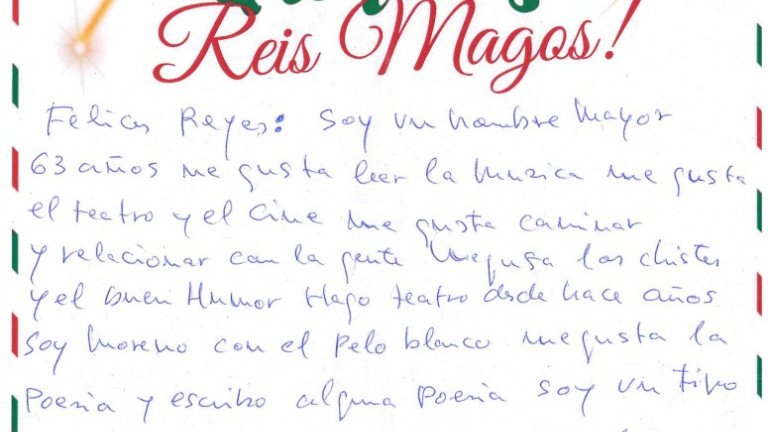 Reis Magos!
Felices Reyes: Soy un hombre Mayor
63 años me gusta leer la Muzica me gusta
el teatro y el cine me gusta caminar
y relacionar con la gente Megusa los chistes
y el buen Humor Hago teatro desde hace años
Soy Moreno con el pelo blanco me gusta la
Poesia y escribo alguna Poesia soy un tipo